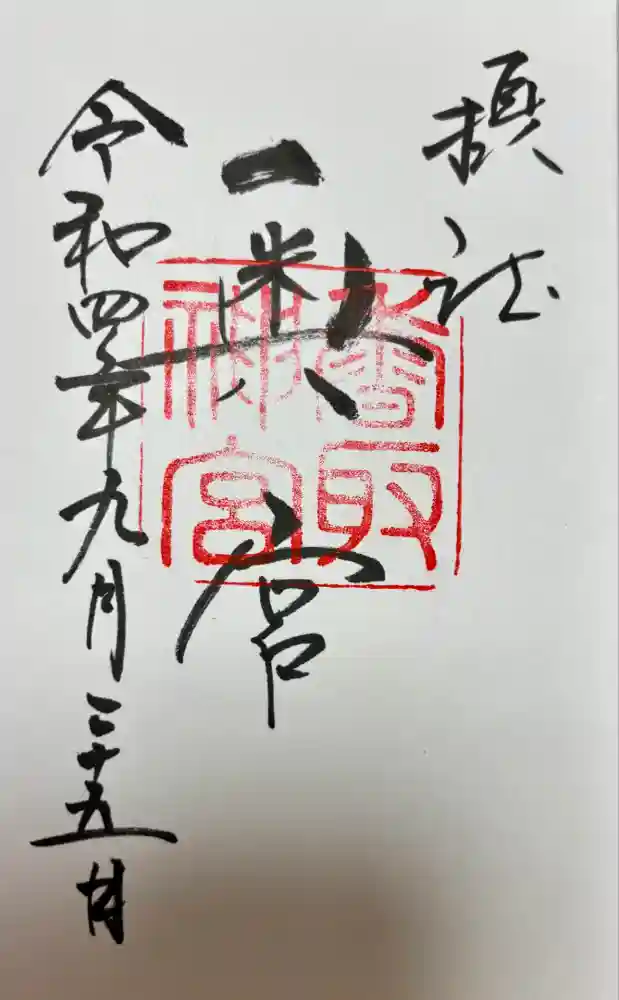 摂社
奥宮
令和四年九月二十五日
香取
神宮